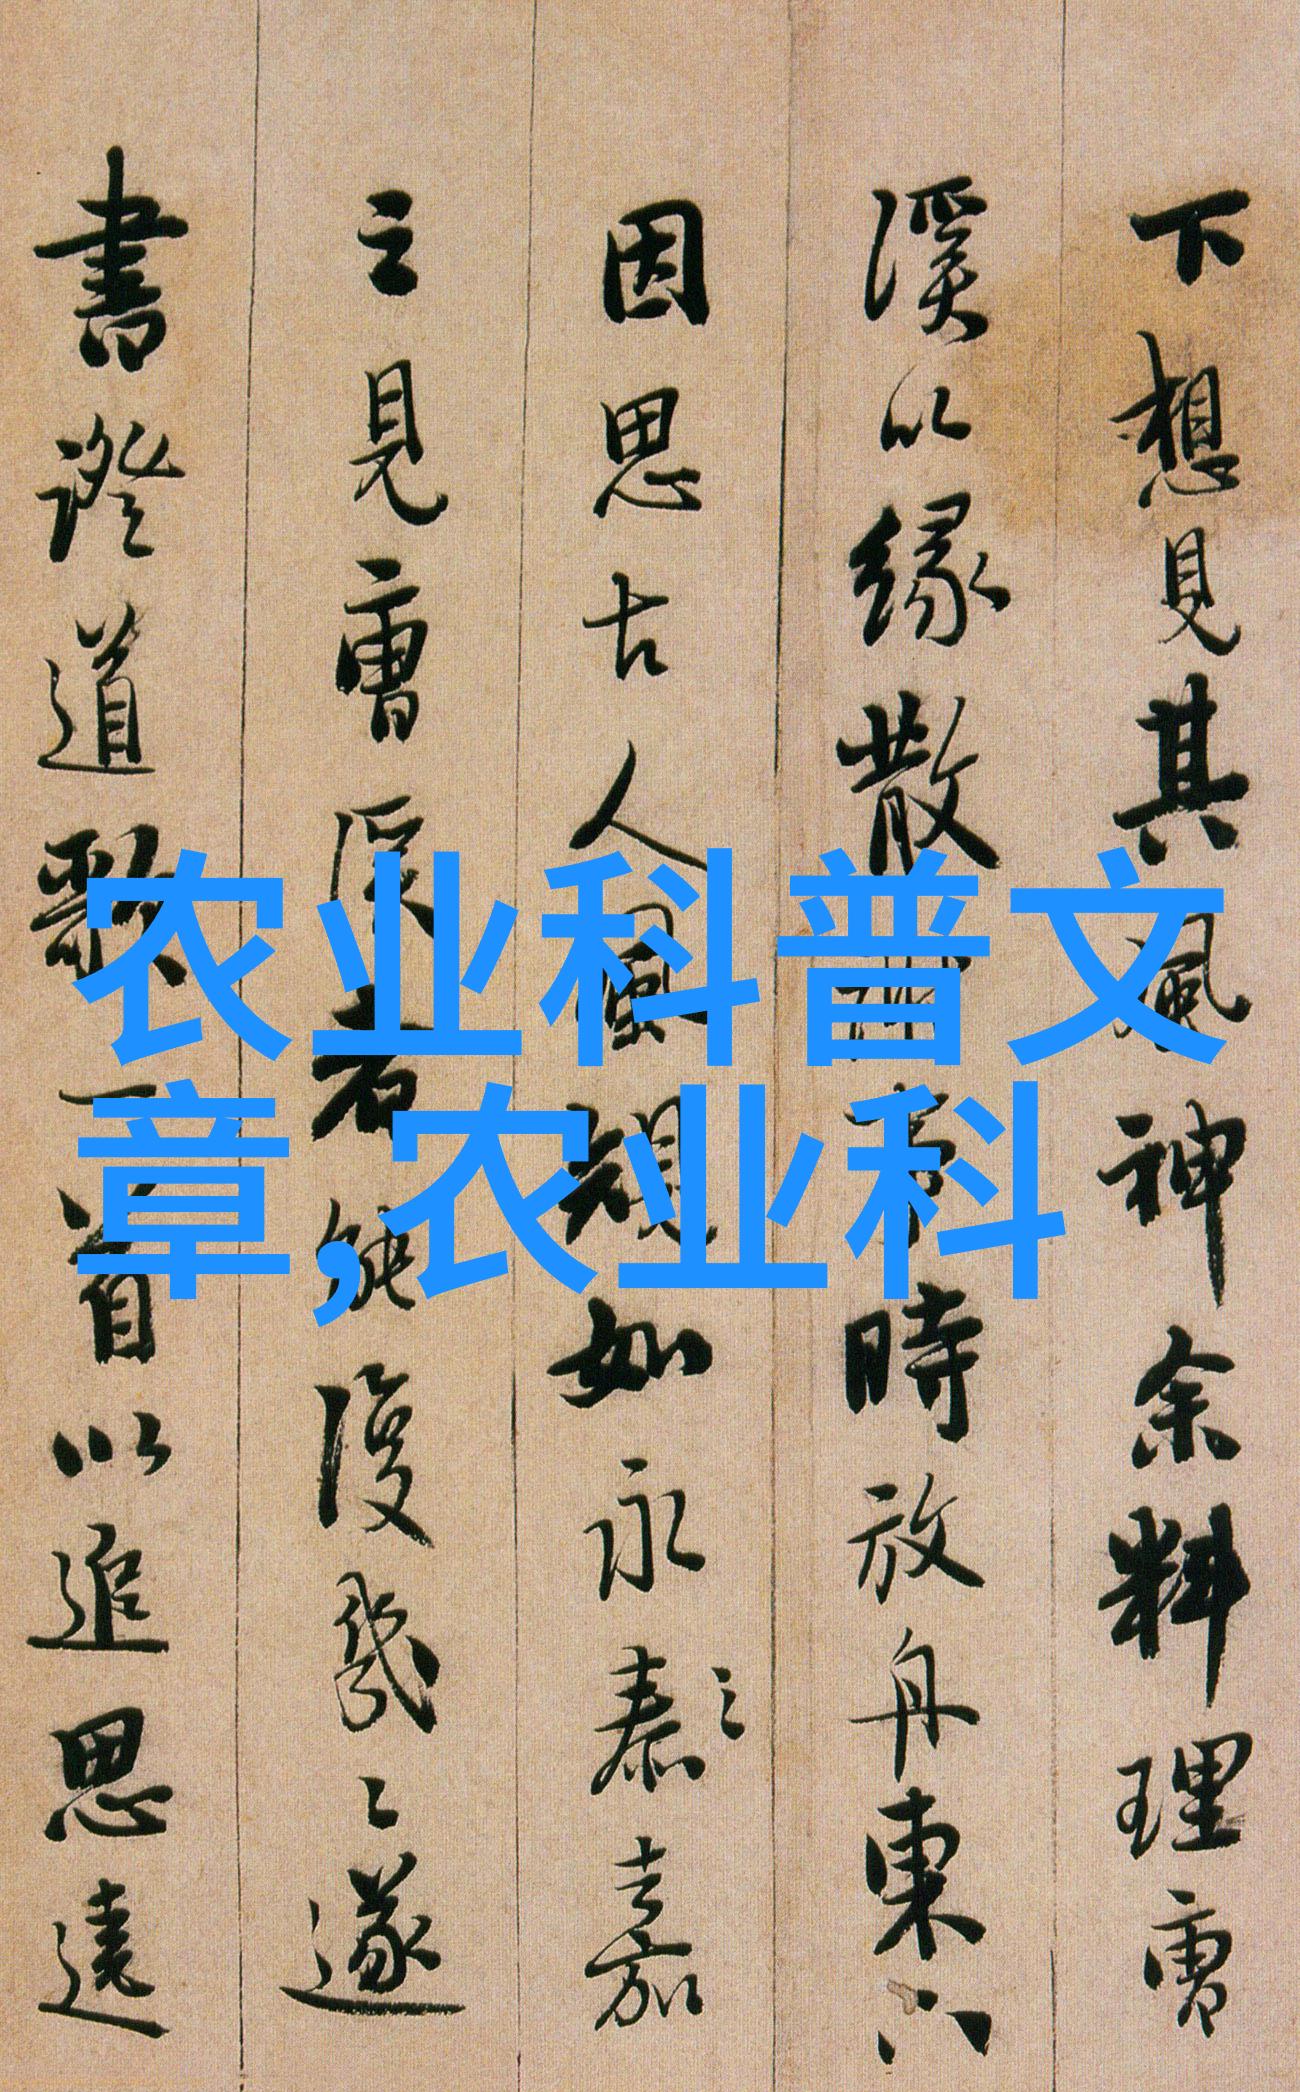 农业科普文
章,农业科
下想見其風神余料理曹
溪以緣散時放舟東
因思古人風規如永泰之嘉
之見曹溪者能復幾遂
書證道歌一首以追思遠